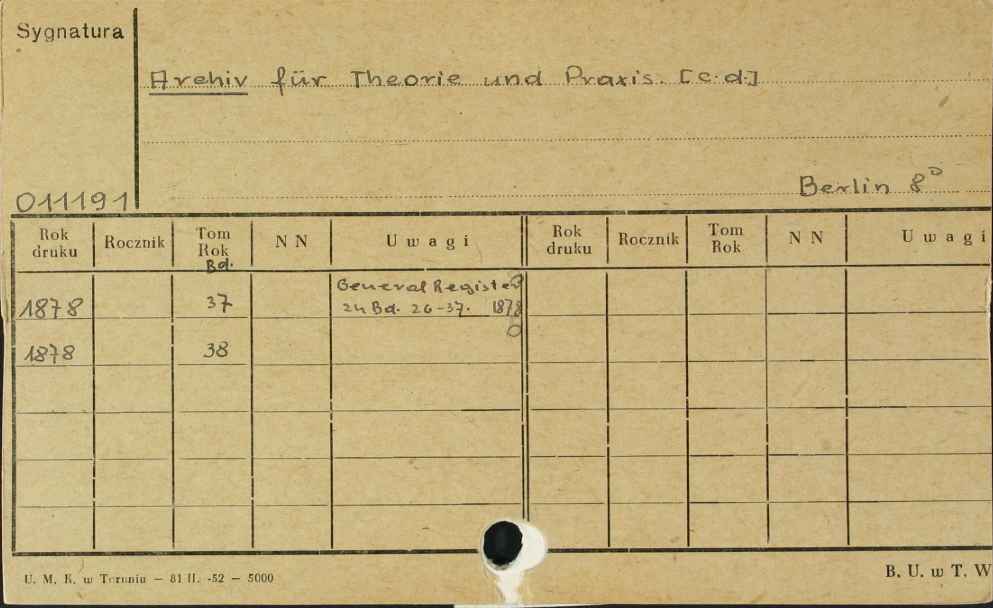 Sygnatura
Archiv für Theorie und Praxis. [c.d.]
Berlin 8°
011191
Rok druku Rocznik Tom Rok NN Uwagi Rok druku Rocznik Tom Rok NN Uwagi
Bd.
General Register
1878 37 zu Bd. 26-37. 1878
1878 38
U. M. K. w Toruniu — 81 II. -52 — 5000
B. U. w T. W